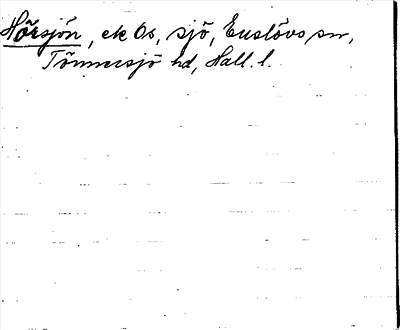 Hörsjön, ek Os, sjö, Enslövs sn,
Tönnersjö hd, Hall. l.